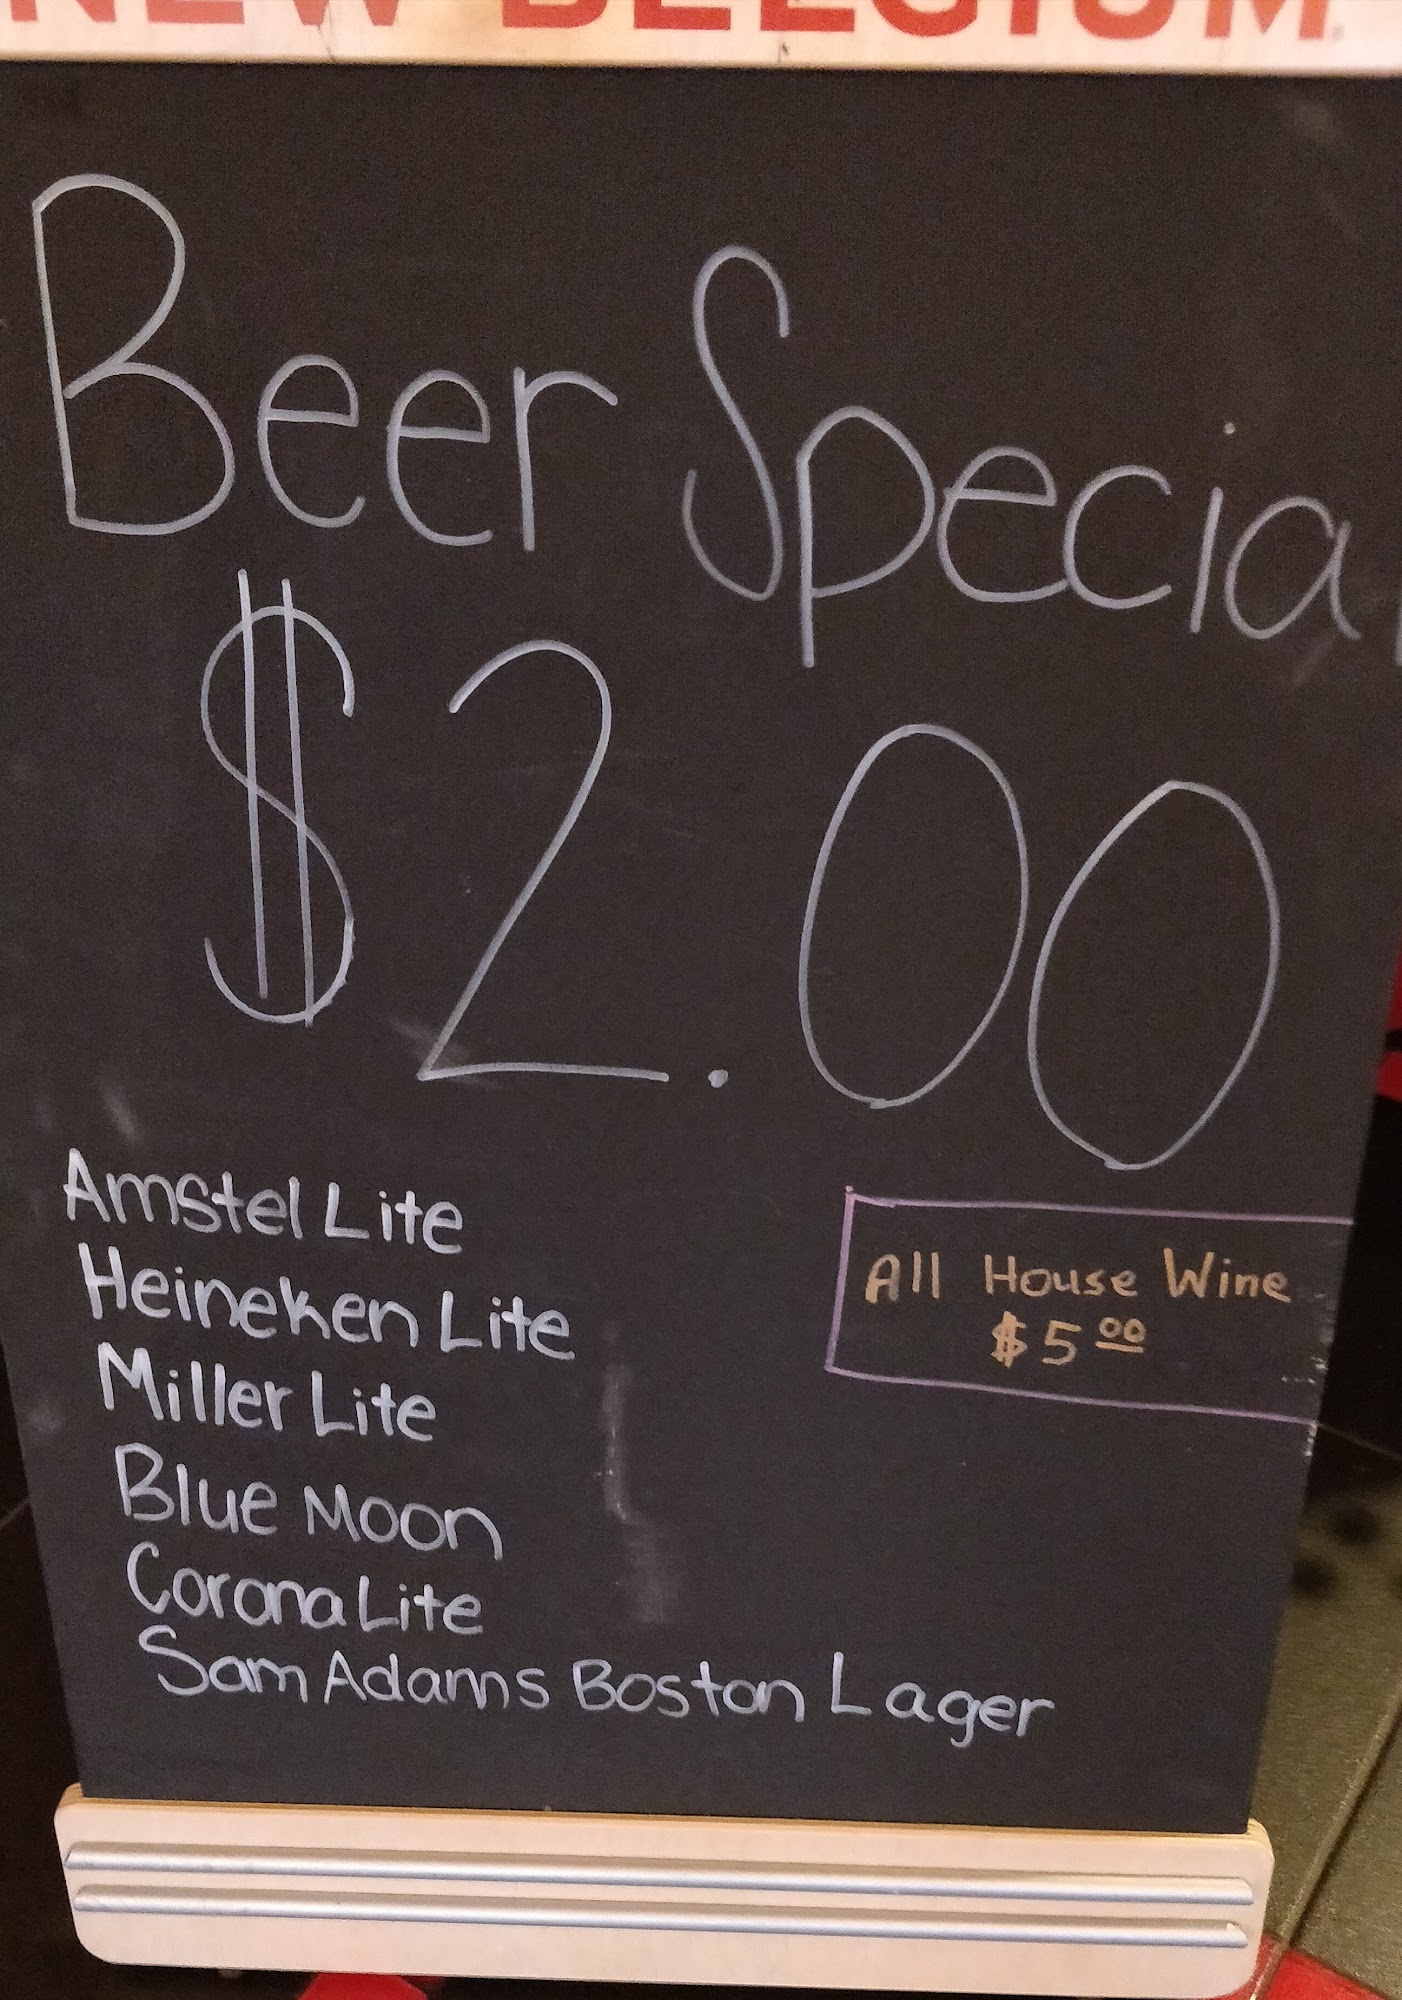 NEW BELGIUM
Beer Special
$2.00
Amstel Lite
Heineken Lite
Miller Lite
Blue Moon
Corona Lite
Sam Adams Boston Lager
All House Wine
$5.00